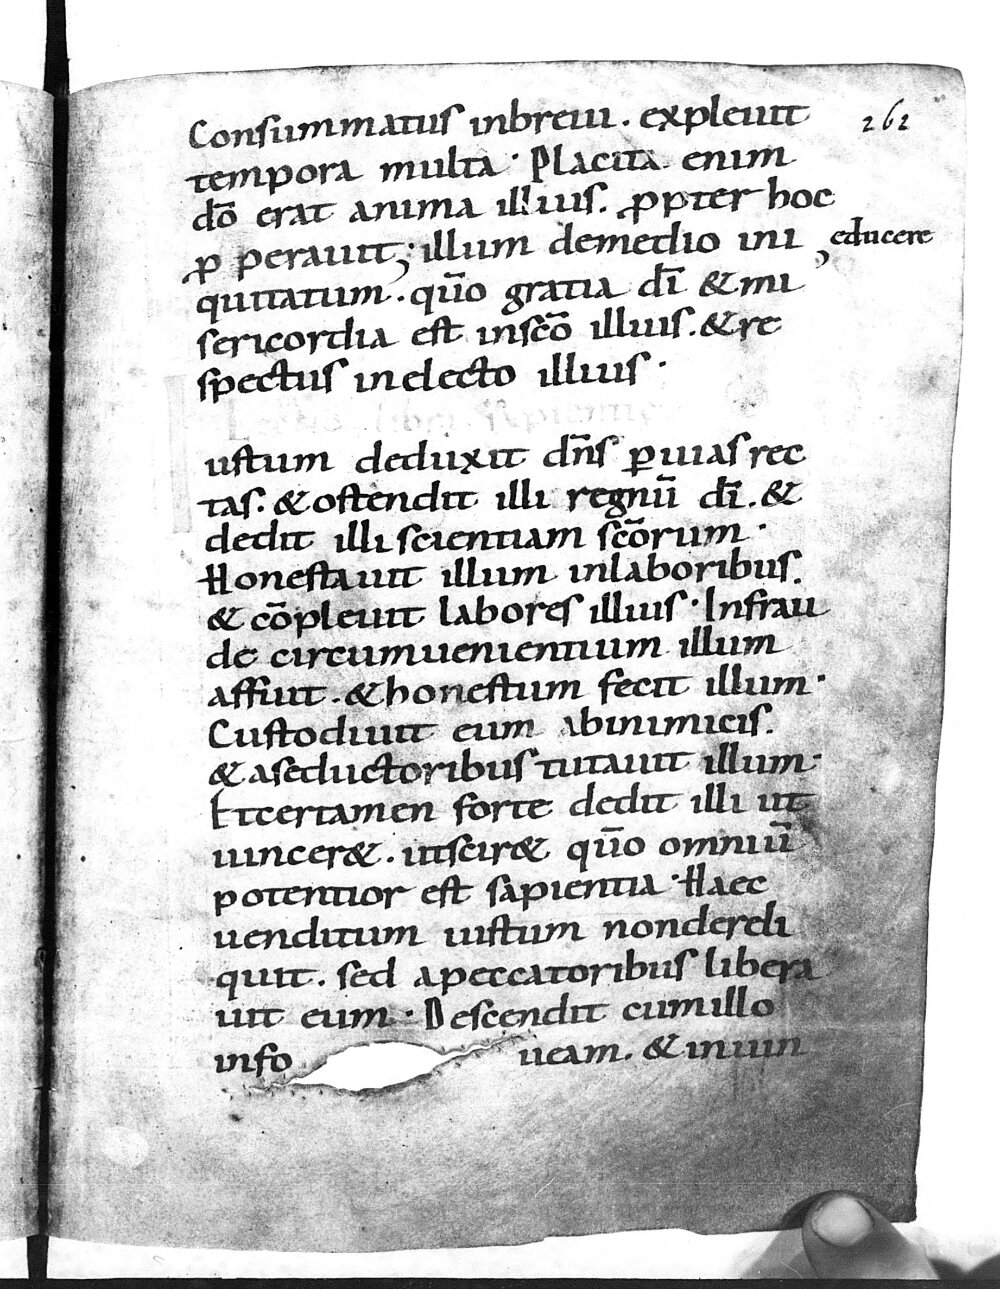 Consummatus inbreui. expleuit
262
tempora multa· Placita enim
dō erat anima illius. ꝓpter hoc
ꝓperauit; illum demedio ini
educere
quitatum. qūo gratia dī & mi
sericordia est inscō illius. & re
spectus inelecto illius·
Lectio libri sapientie
ustum deduxit dn̄s ꝑuias rec
tas. & ostendit illi regnū dī. &
dedit illi scientiam scōrum·
Honestauit illum inlaboribus.
& cōpleuit labores illius· Infrau
de circumuenientium illum
affuit. & honestum fecit illum·
Custodiuit eum abinimicis.
& aseductoribus tutauit illum·
Etcertamen forte dedit illi ut
uincer&. utscir& qūo omniū
potentior est sapientia· Haec
uenditum iustum nondereli
quit. sed apeccatoribus libera
uit eum· Descendit cumillo
info ueam. & inuin